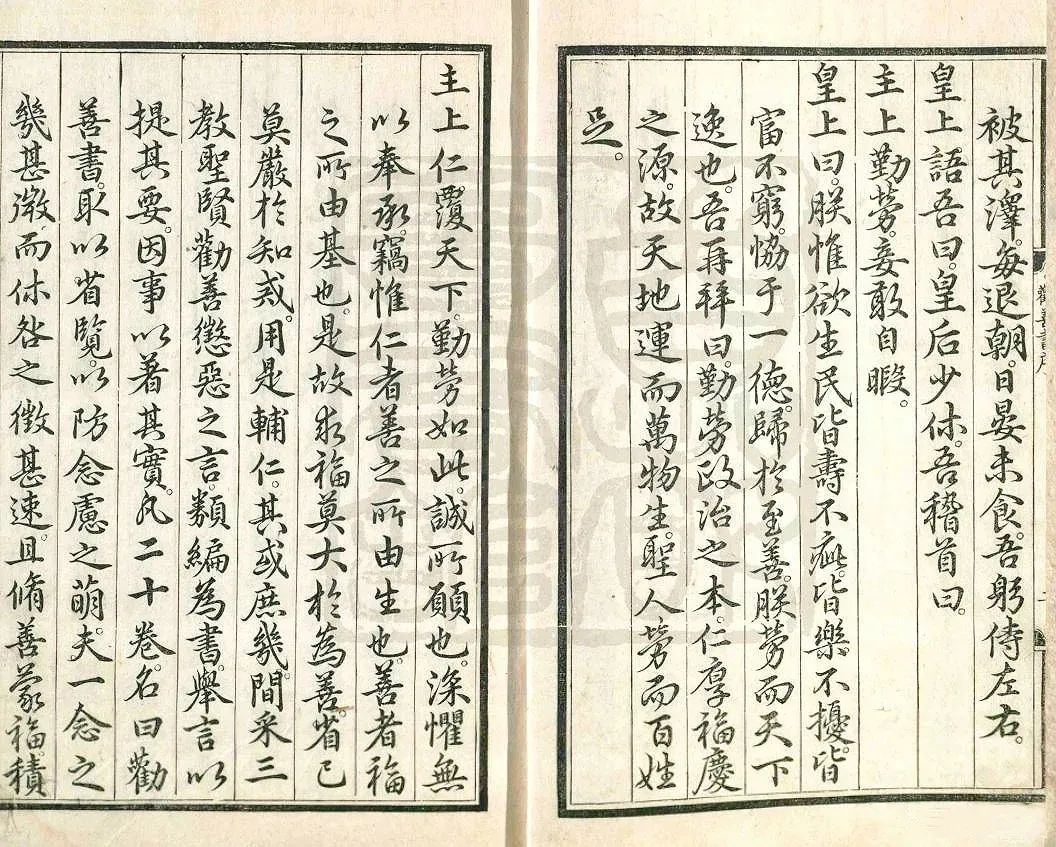 被其澤。每退朝。日晏未食。吾躬侍左右。
皇上語吾曰。皇后少休。吾稽首曰。
主上勤勞。妾敢自暇。
皇上曰。朕惟欲生民皆壽不疵。皆樂不擾。皆
富不窮。恊于一德。歸於至善。朕勞而天下
逸也。吾再拜曰。勤勞政治之本。仁厚福慶
之源。故天地運而萬物生。聖人勞而百姓
足。
主上仁覆天下。勤勞如此。誠所願也。深懼無
以奉承。竊惟仁者善之所由生也。善者福
之所由基也。是故求福莫大於為善。省己
莫嚴於知戒。用是輔仁。其或庶幾。間采三
教聖賢勸善懲惡之言。類編為書。舉言以
提其要。因事以著其實。凡二十卷。名曰勸
善書。取以省覽。以防念慮之萌。夫一念之
幾甚微。而休咎之徵甚速。且脩善蒙福。積
勸善書序